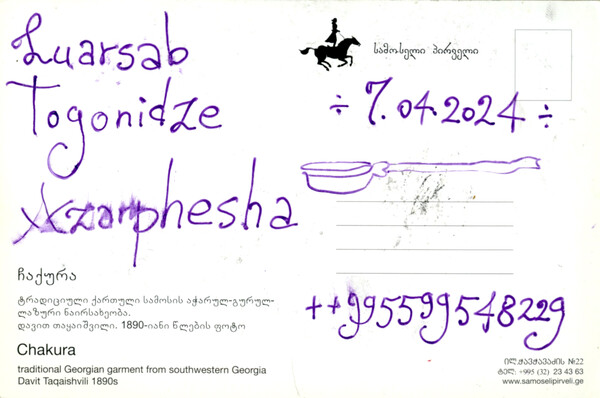 Luarsab
Togonidze
Azarphesha
ჩაქურა
ტრადიციული ქართული სამოსის აჭარულ-გურულ-
ლაზური ნაირსახეობა.
დავით თაყაიშვილი. 1890-იანი წლების ფოტო
Chakura
traditional Georgian garment from southwestern Georgia
Davit Taqaishvili 1890s
სამოსელი პირველი
÷ 7.04.2024 ÷
++995599548229
ილ.ჭავჭავაძის №22
ტელ: +995 (32) 23 43 63
www.samoselipirveli.ge